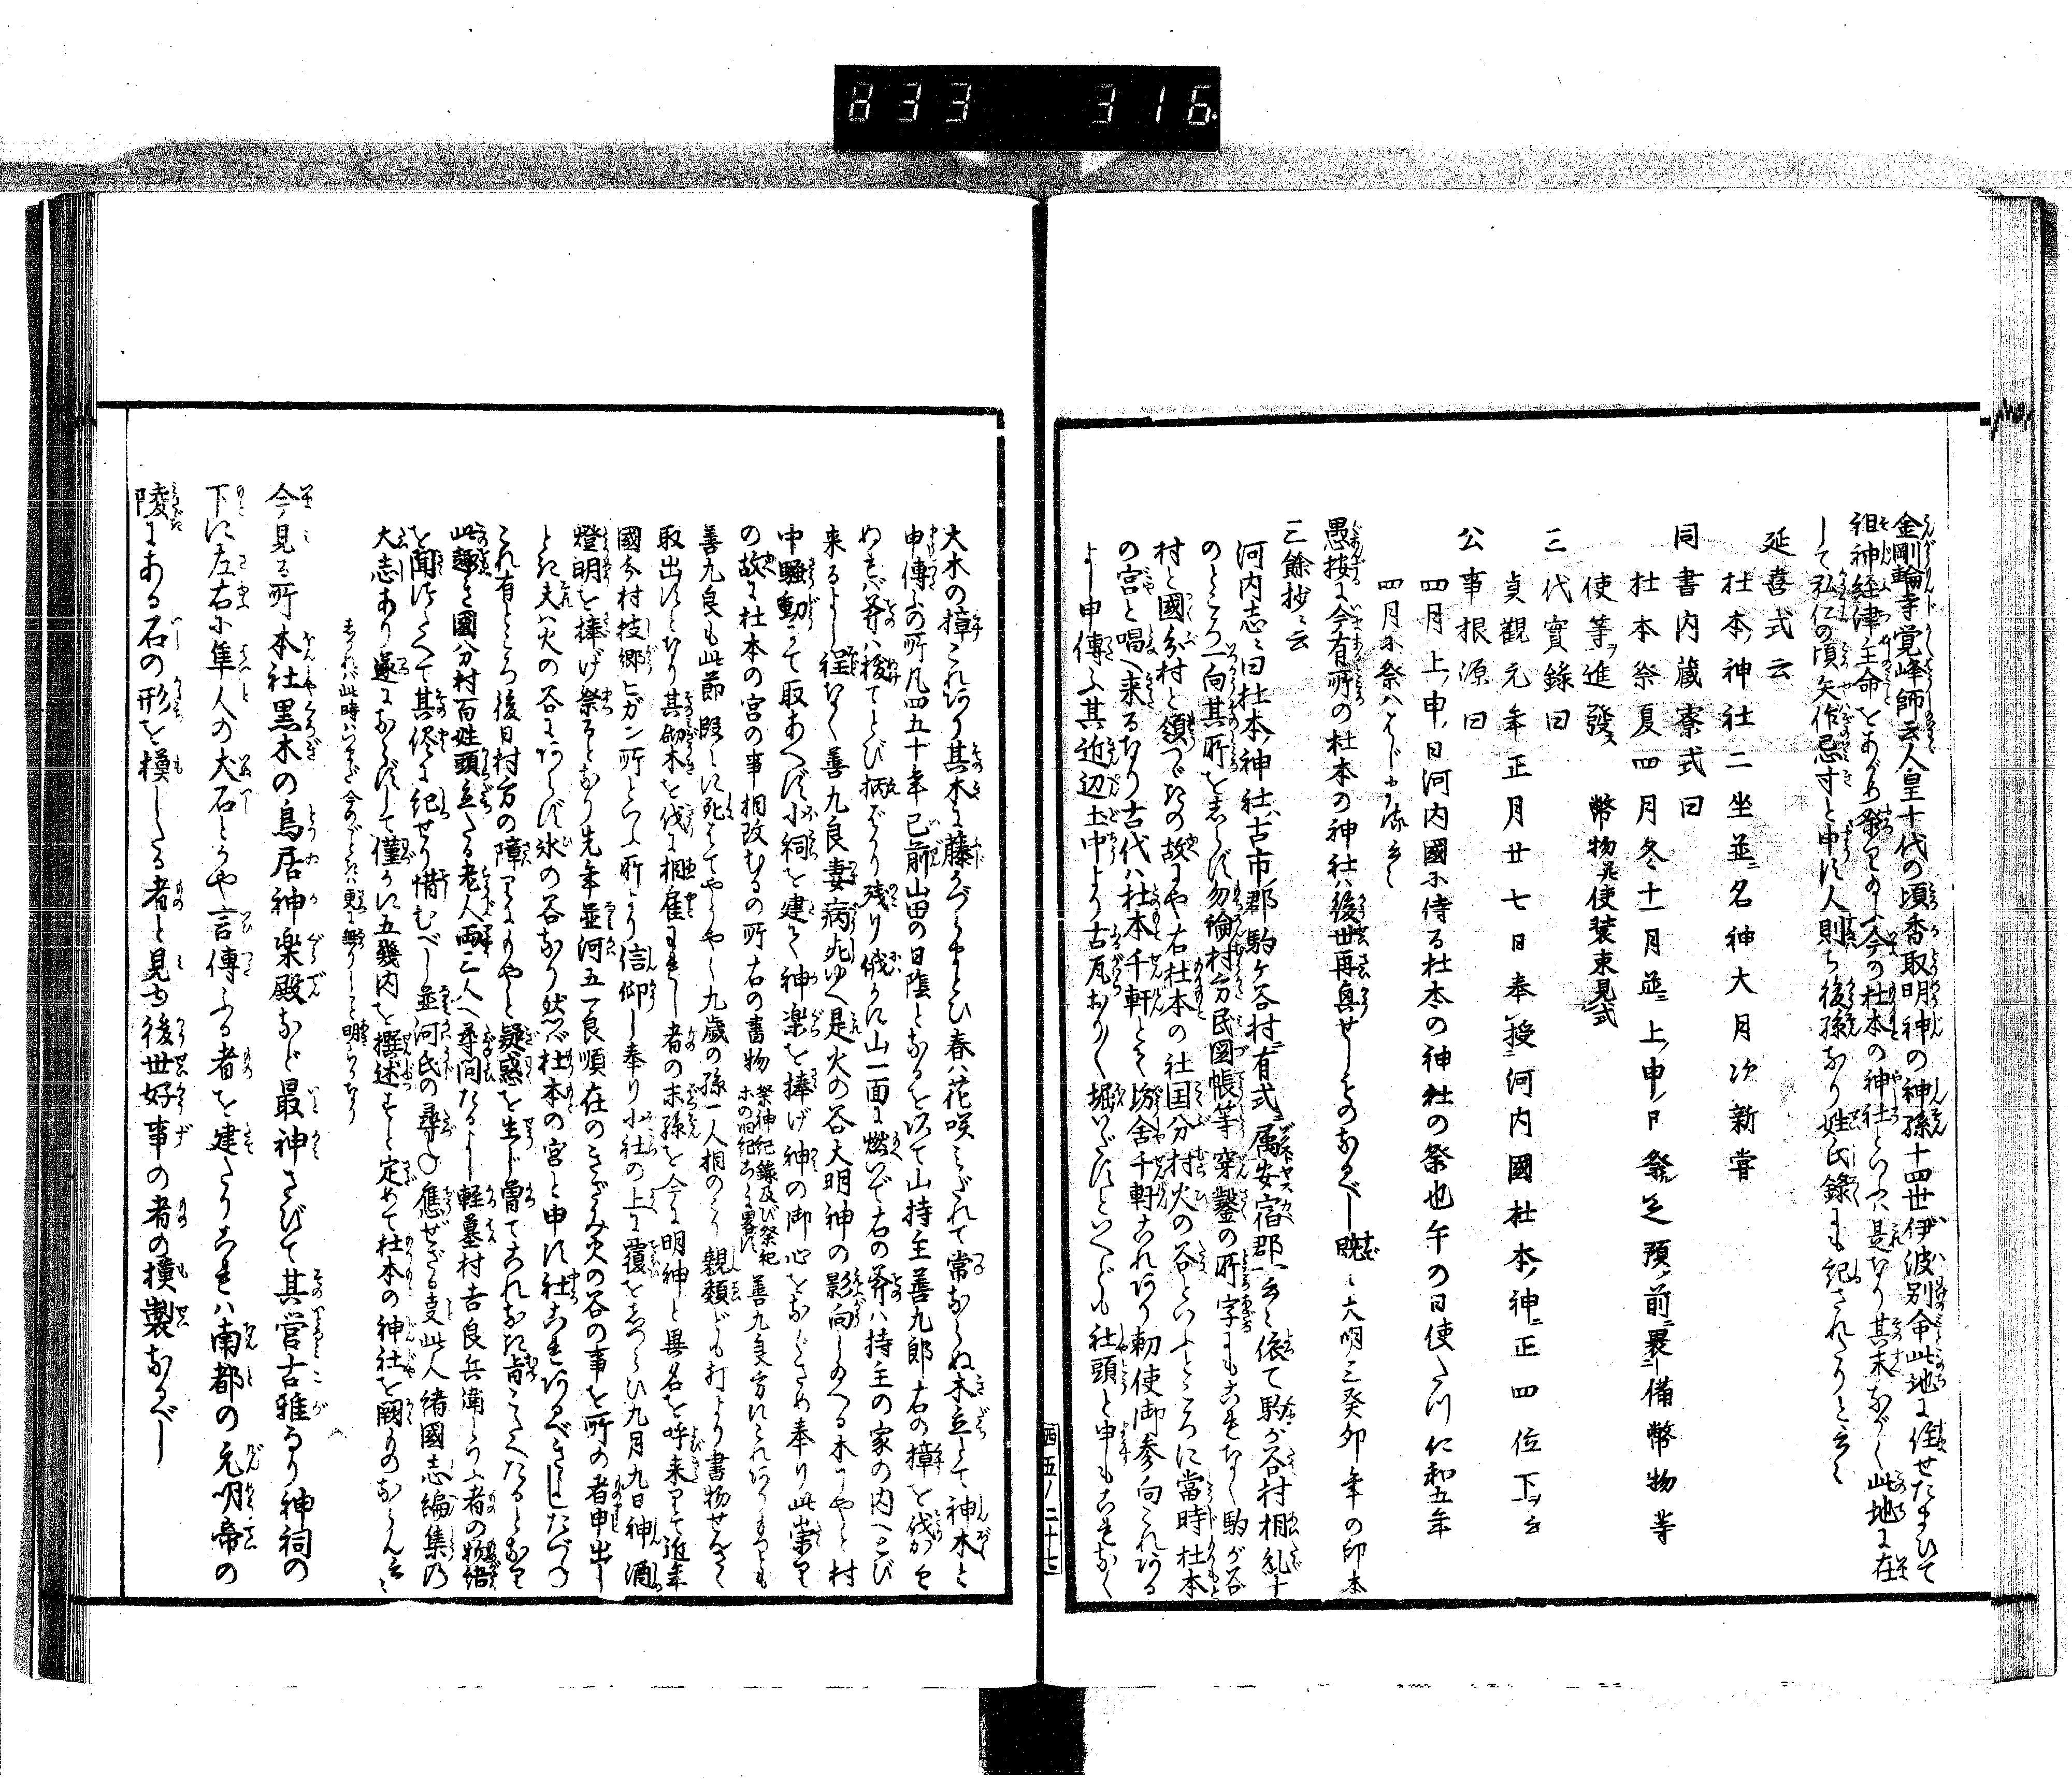 833 316
金剛輪寺覚峰師云人皇十代の頃香取明神の神孫十四世伊波別命此地に住せたまひて
祖神経津主命をあがめ祭りの今の杜本の神社といへる是なり其末ながく此地に在
して私仁の頃矢作忌寸と申す人則ち後孫なり姓氏録にも記されたりと云々
延喜式云
杜本神社二坐並名神大月次新嘗
同書内蔵寮式曰
杜本祭夏四月冬十一月並上申日祭之預前畏備幣物等
使等進發 幣物及使装束見式
三代實錄曰
貞觀元年正月廿七日奉授河内國杜本神正四位下云
公事根源曰
四月上申日河内國に侍る杜本の神社の祭也午の日使たつ仁和五年
四月に祭はじまる云々
愚按に今有所の杜本の神社は後世再興せしものなるべし既に大明三癸卯年の印本
三餘抄に云
河内志に曰杜本神社古市郡駒ヶ谷村有式属安宿郡云々依て駒が谷村相糺す
のところ一向其所をしらず勿論村方民図帳等穿鑿の所字にも者なく駒が谷
村と國分村と領つづきの故にや右杜本の社国分村火の谷といふところに當時杜本
の宮と唱へ来るなり古代は杜本千軒とて坊舎千軒これあり勅使御参向これある
よし申傳ふ其近辺土中より古瓦おほく堀いだすといへども社頭と申もなく
大木の樟これあり其木に藤かづらまとひ春は花咲みだれて常ならぬ木立とて神木と
申傳ふの所凡四五十年已前山田の日陰となるを以て山持主善九郎右の樟を伐かけ
ぬれば斧は抜てとび柄ばかり残り俄かに山一面に燃いで右の斧は持主の家の内へとび
来るよし程なく善九良妻病死ゆへ是火の谷大明神の影向しのへる木にやと村
中騒動して取あへず小祠を建て神楽を捧げ神の御心をなぐさめ奉り此祟り
の故に杜本の宮の事相改むるの所右の書物 祭神紀録及び祭祀ホの旧紀 善九良方にこれありもつとも
善九良も此節既に死してやうやく九歳の孫一人相のこり親類ども打より書物せんさく
取出すとなり其御木を伐に相雇われし者の末孫を今に明神と異名を呼来りて近年
國分村枝郷ヒガン所といふ所より信仰し奉り小社の上に覆をしつらひ九月九日神酒
燈明を捧げ祭るとなり先年並河五一良順在のきざみ火の谷の事を所の者申出し
とき夫は火の谷にあらず氷の谷なり然ば杜本の宮と申す社これあるべきよしたづね
これ有ところ後日村方の障りにもやと疑惑を生じ曾てこれなき旨こたへたるとなり
此趣を國分村百姓頭立たる老人両三人へ尋問たるよし軽墓村吉良兵衛といふ者の物語
を聞けるまて其侭に紀せり惜むべし並河氏の尋に應ぜざる支此人緒國志編集の
大志あり遂にならずして僅かに五幾内を撰述すと定めて杜本の神社を闕ものならん云々
しかれば此時はいまだ今のごときは更に無りしこと明らかなり
今見る所本社黒木の鳥居神楽殿など最神さびて其営古雅なり神祠の
下に左右に隼人の犬石とかや言傳ふる者を建たりこれは南都の元明帝の
陵にある石の形を模したる者と見ゆ後世好事の者の模製なるべし
西五ノ二十七